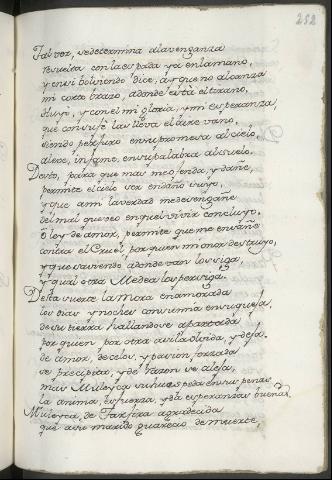 252
Tal vez, se determina a la venganza
resuelta con la espada ya en la mano,
y en si bolviendo dice, ay que no alcanza
mi corto brazo, adonde está el tirano,
Huyó, y con el mi gloria, y mi esperanza,
que con su fè las lleva el aire vano,
siendo perjuro en su promesa al cielo,
aleve, infame, en su palabra al suelo.
Desto, para que mas me ofenda, y dañe,
permite el cielo ver en daño suyo,
y que aun la verdad me desengañe
del mal que veo en que el vivir concluyo.
O ley de amor, permite que me ensañe
contra el Cruel por quien mi onor destruyo,
y que sabiendo adonde van los siga,
y qual otra Medea los persiga.
Desta suerte la Mora enamorada
los dias y noches consumia en su quexa,
de su tierra hallandose apartada
por quien por otra asi la olvida, y deja.
de amor, de celos, y pasion forzada
se precipita, y de razon se aleja,
mas Muleyca su huespeda en sus penas
la anima, esfuerza, y da esperanzas buenas.
Muleyca, de Tarfira agradecida
que a su marido guareció de muerte,